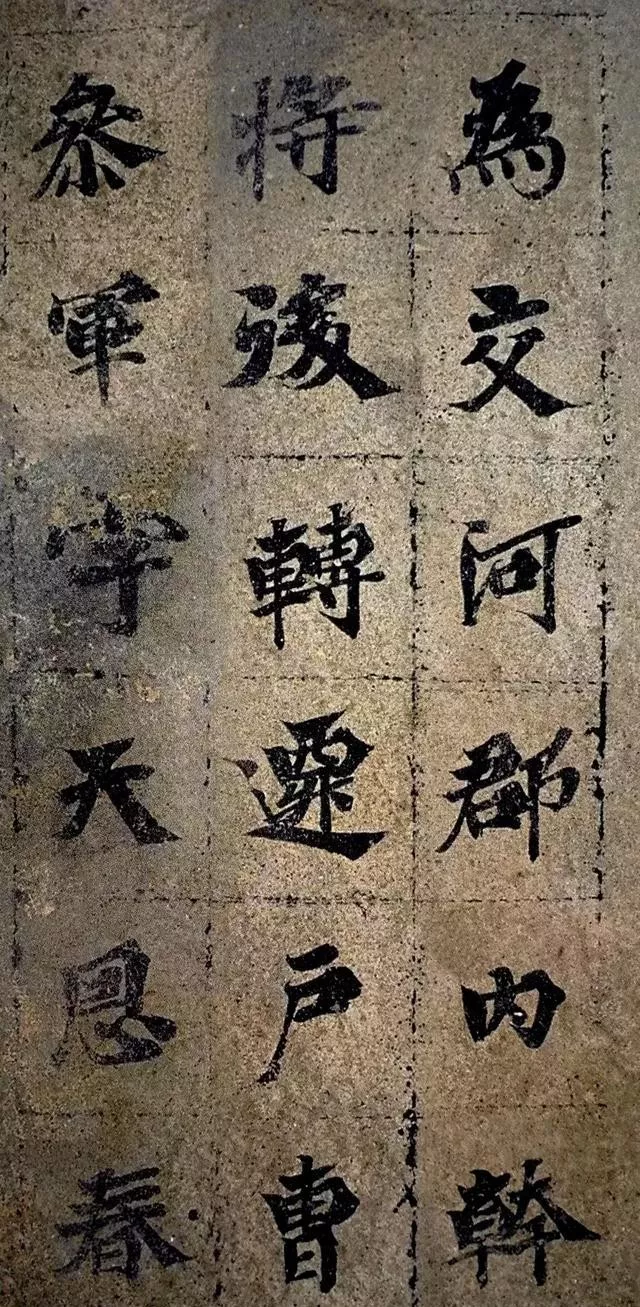 為交河郡内幹
將後轉遷户曹
參軍字天恩春